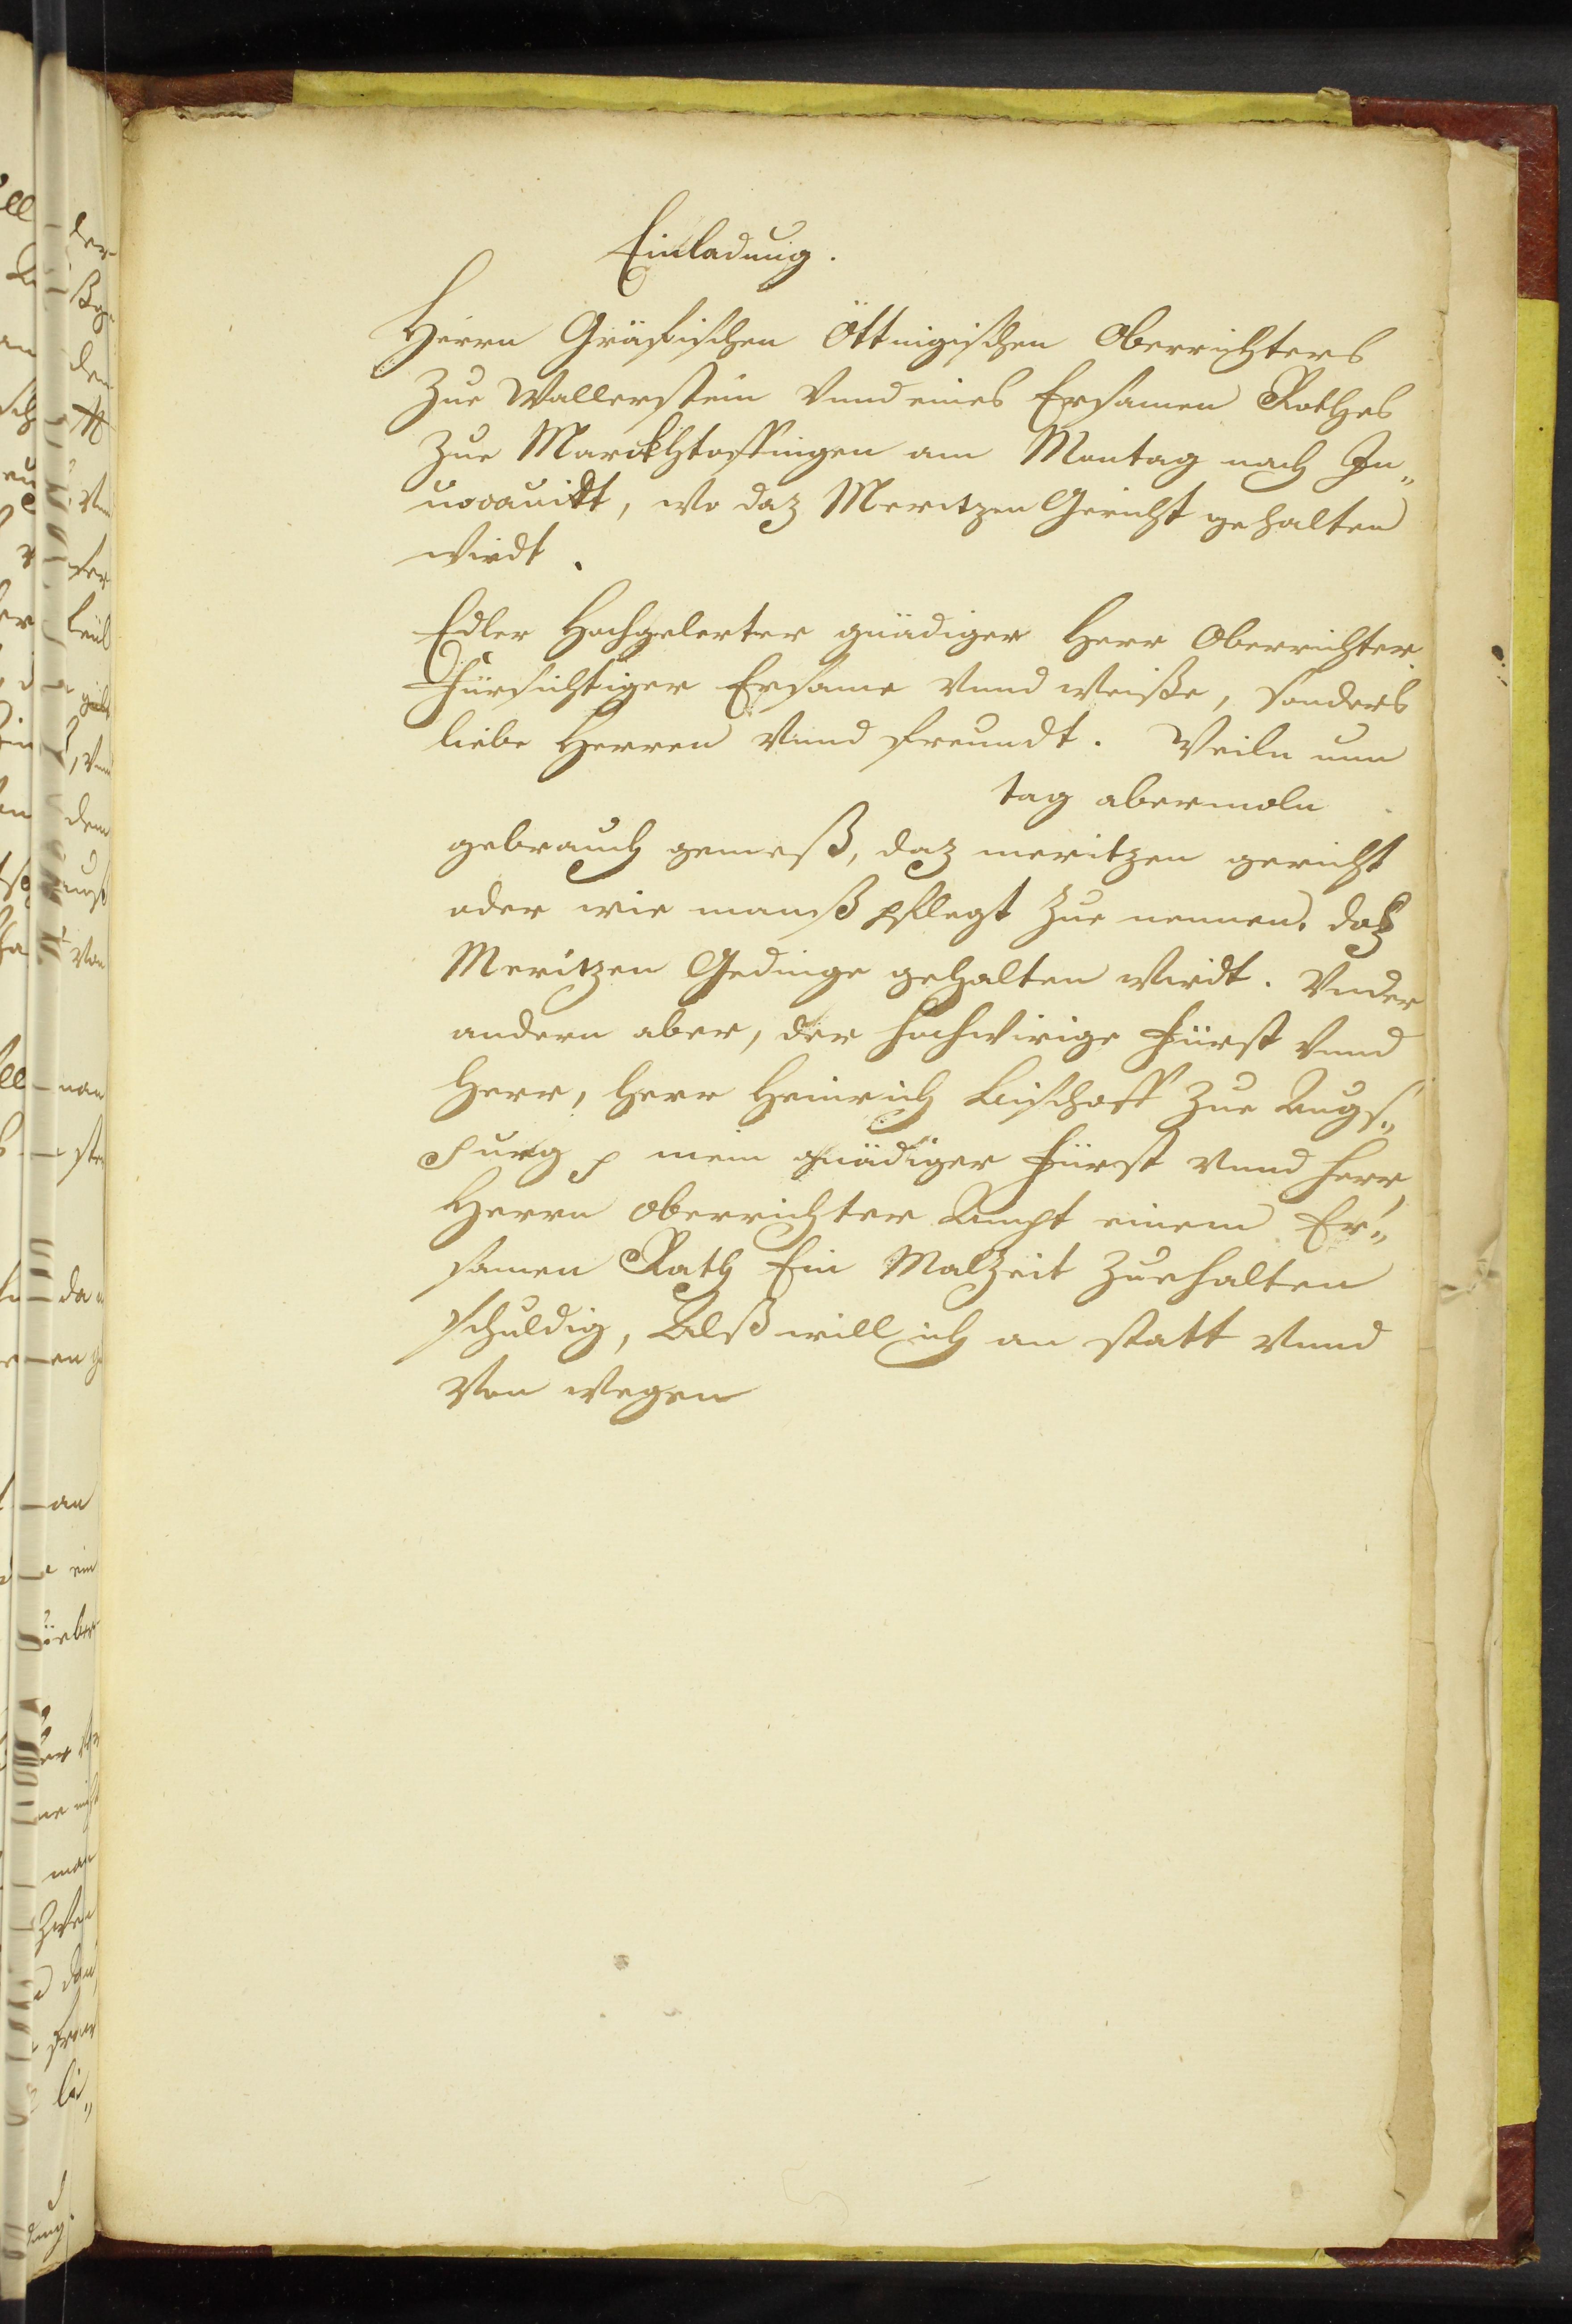 Einladung.
Herrn Gräfischen Öttingischen Oberrichters
Zue Wallerstein Vnnd eines Ersamen Rathes
Zue Marckhtoffingen am Montag nach In„
uocauidt, wo daz Meritzen Gericht gehalten
wirdt.
Edler Hochgelerter gnädiger Herr Oberrichter
Fürsichtiger Ersame Vnnd Weiße, sonders
liebe Herren Vnnd freundt. Weiln nun
tag abermoln
gebrauch gemeß, daz meritzen gericht
oder wie manß pflegt zue nennen. daß
Meritzen Gedinge gehalten wirdt. Vnder
andern aber, der hochwirige Fürst Vnnd
Herr, Herr Heinrich Bischoff Zue Augs„
purg p mein gnädiger Fürst Vnnd Herr,
Herrn Oberrichter Sampt einem Er„
samen Rath Ein Malzeit Zuehalten
schuldig, Alß will ich an statt Vnnd
Von wegen